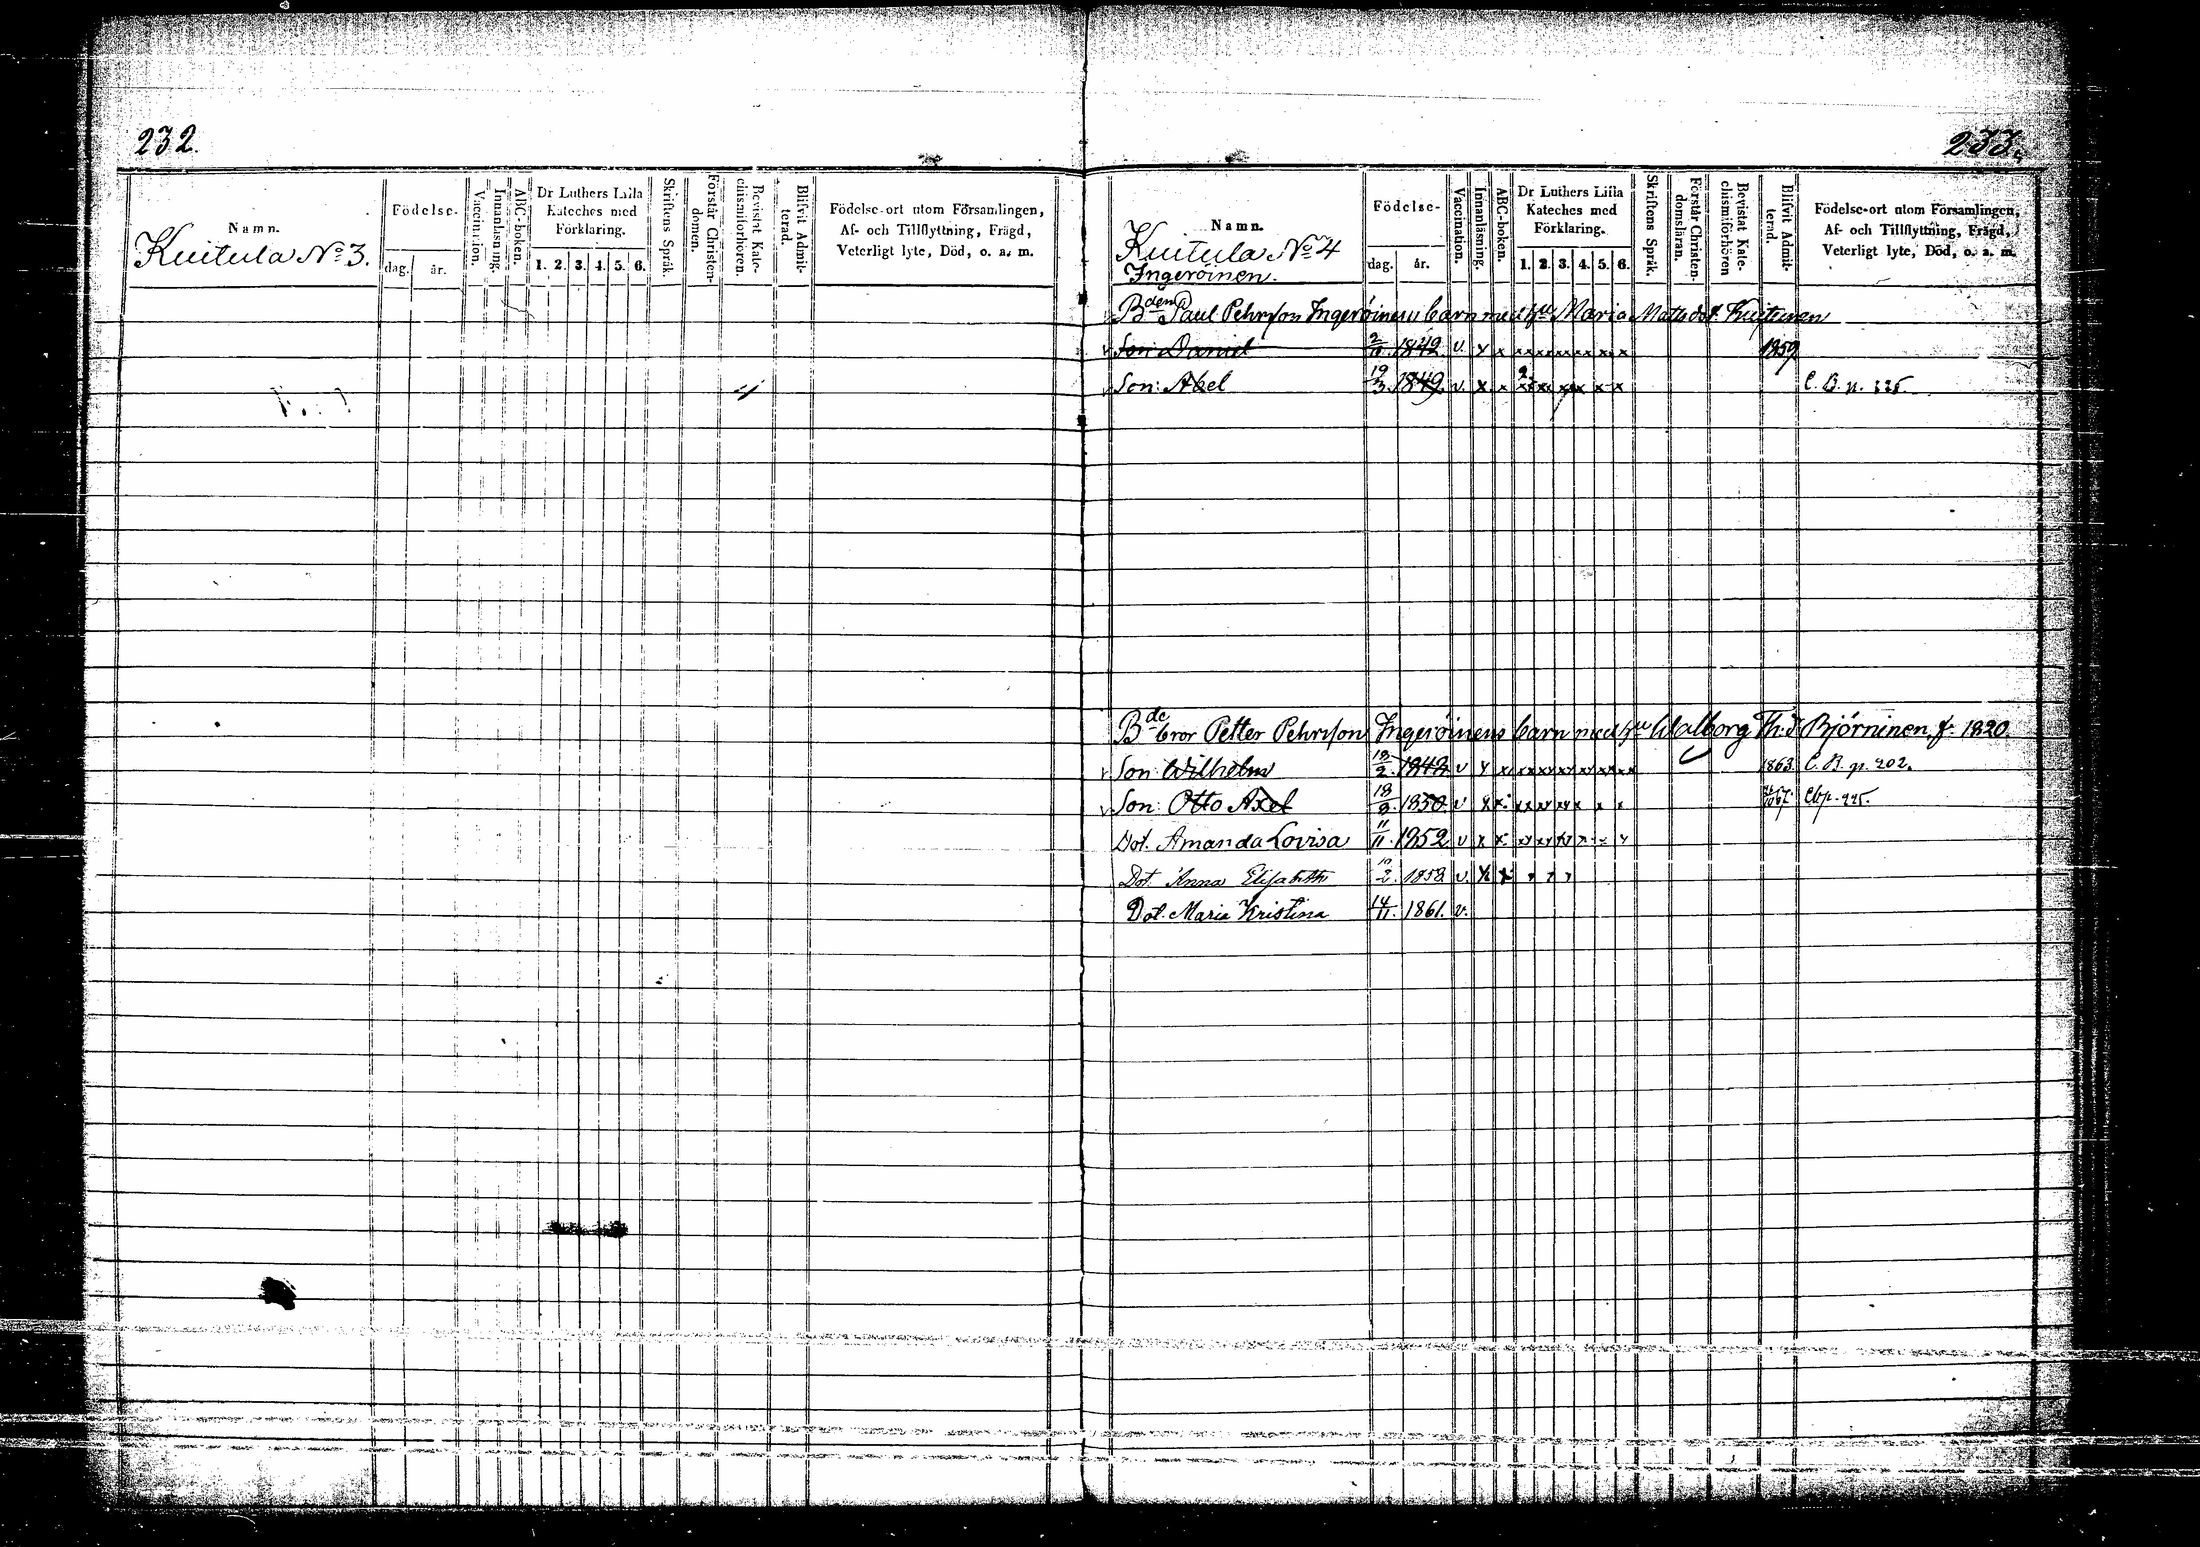 232.
Namn.
Kuitula No 3.
Födelse-
dag. år.
Vaccination.
Innanläsning.
ABC-boken.
Dr Luthers Lilla Kateches med Förklaring.
1. 2. 3. 4. 5. 6.
Skriftens Språk.
Förstår Christendomen.
Bevistat Katechismiförhören.
Blifvit Admitterad.
Födelse-ort utom Församlingen,
Af- och Tillflyttning, Frägd,
Veterligt lyte, Död, o. a. m.
233.
Namn.
Kuitula No 4
Ingeröinen.
Födelse-
dag. år.
Vaccination.
Innanläsning.
ABC-boken.
Dr Luthers Lilla Kateches med Förklaring.
1. 2. 3. 4. 5. 6.
Skriftens Språk.
Förstår Christendomsläran.
Bevistat Katechismiförhören
Blifvit Admitterad.
Födelse-ort utom Församlingen,
Af- och Tillflyttning, Frägd,
Veterligt lyte, Död, o. a. m.
Bden Paul Pehrsson Ingeröinens barn med hu Maria Mattsdot. Kuitunen
Son: Daniel 2/10. 1842. v. x x xx xx xx xx x x 1859
Son: Abel 19/3. 1849. v. x. x xx xx xx x x C. B. p.
Bde bror Petter Pehrsson Ingeröinens barn med hu Walborg Th:d Björninen f. 1820.
Son: Wilhelm 18/2. 1843 v x x xx xx xx xx xx xx 1863. C. B. p. 202.
Son: Otto Axel 18/8. 1850. v x x xx xx xx x x x 67. Cbp.
Dot. Amanda Lovisa 11/11. 1852 v x x xx xx xx x x x
Dot. Anna Elisabeth 2. 1858. v. x x
Dot. Maria Kristina 14/11. 1861. v.